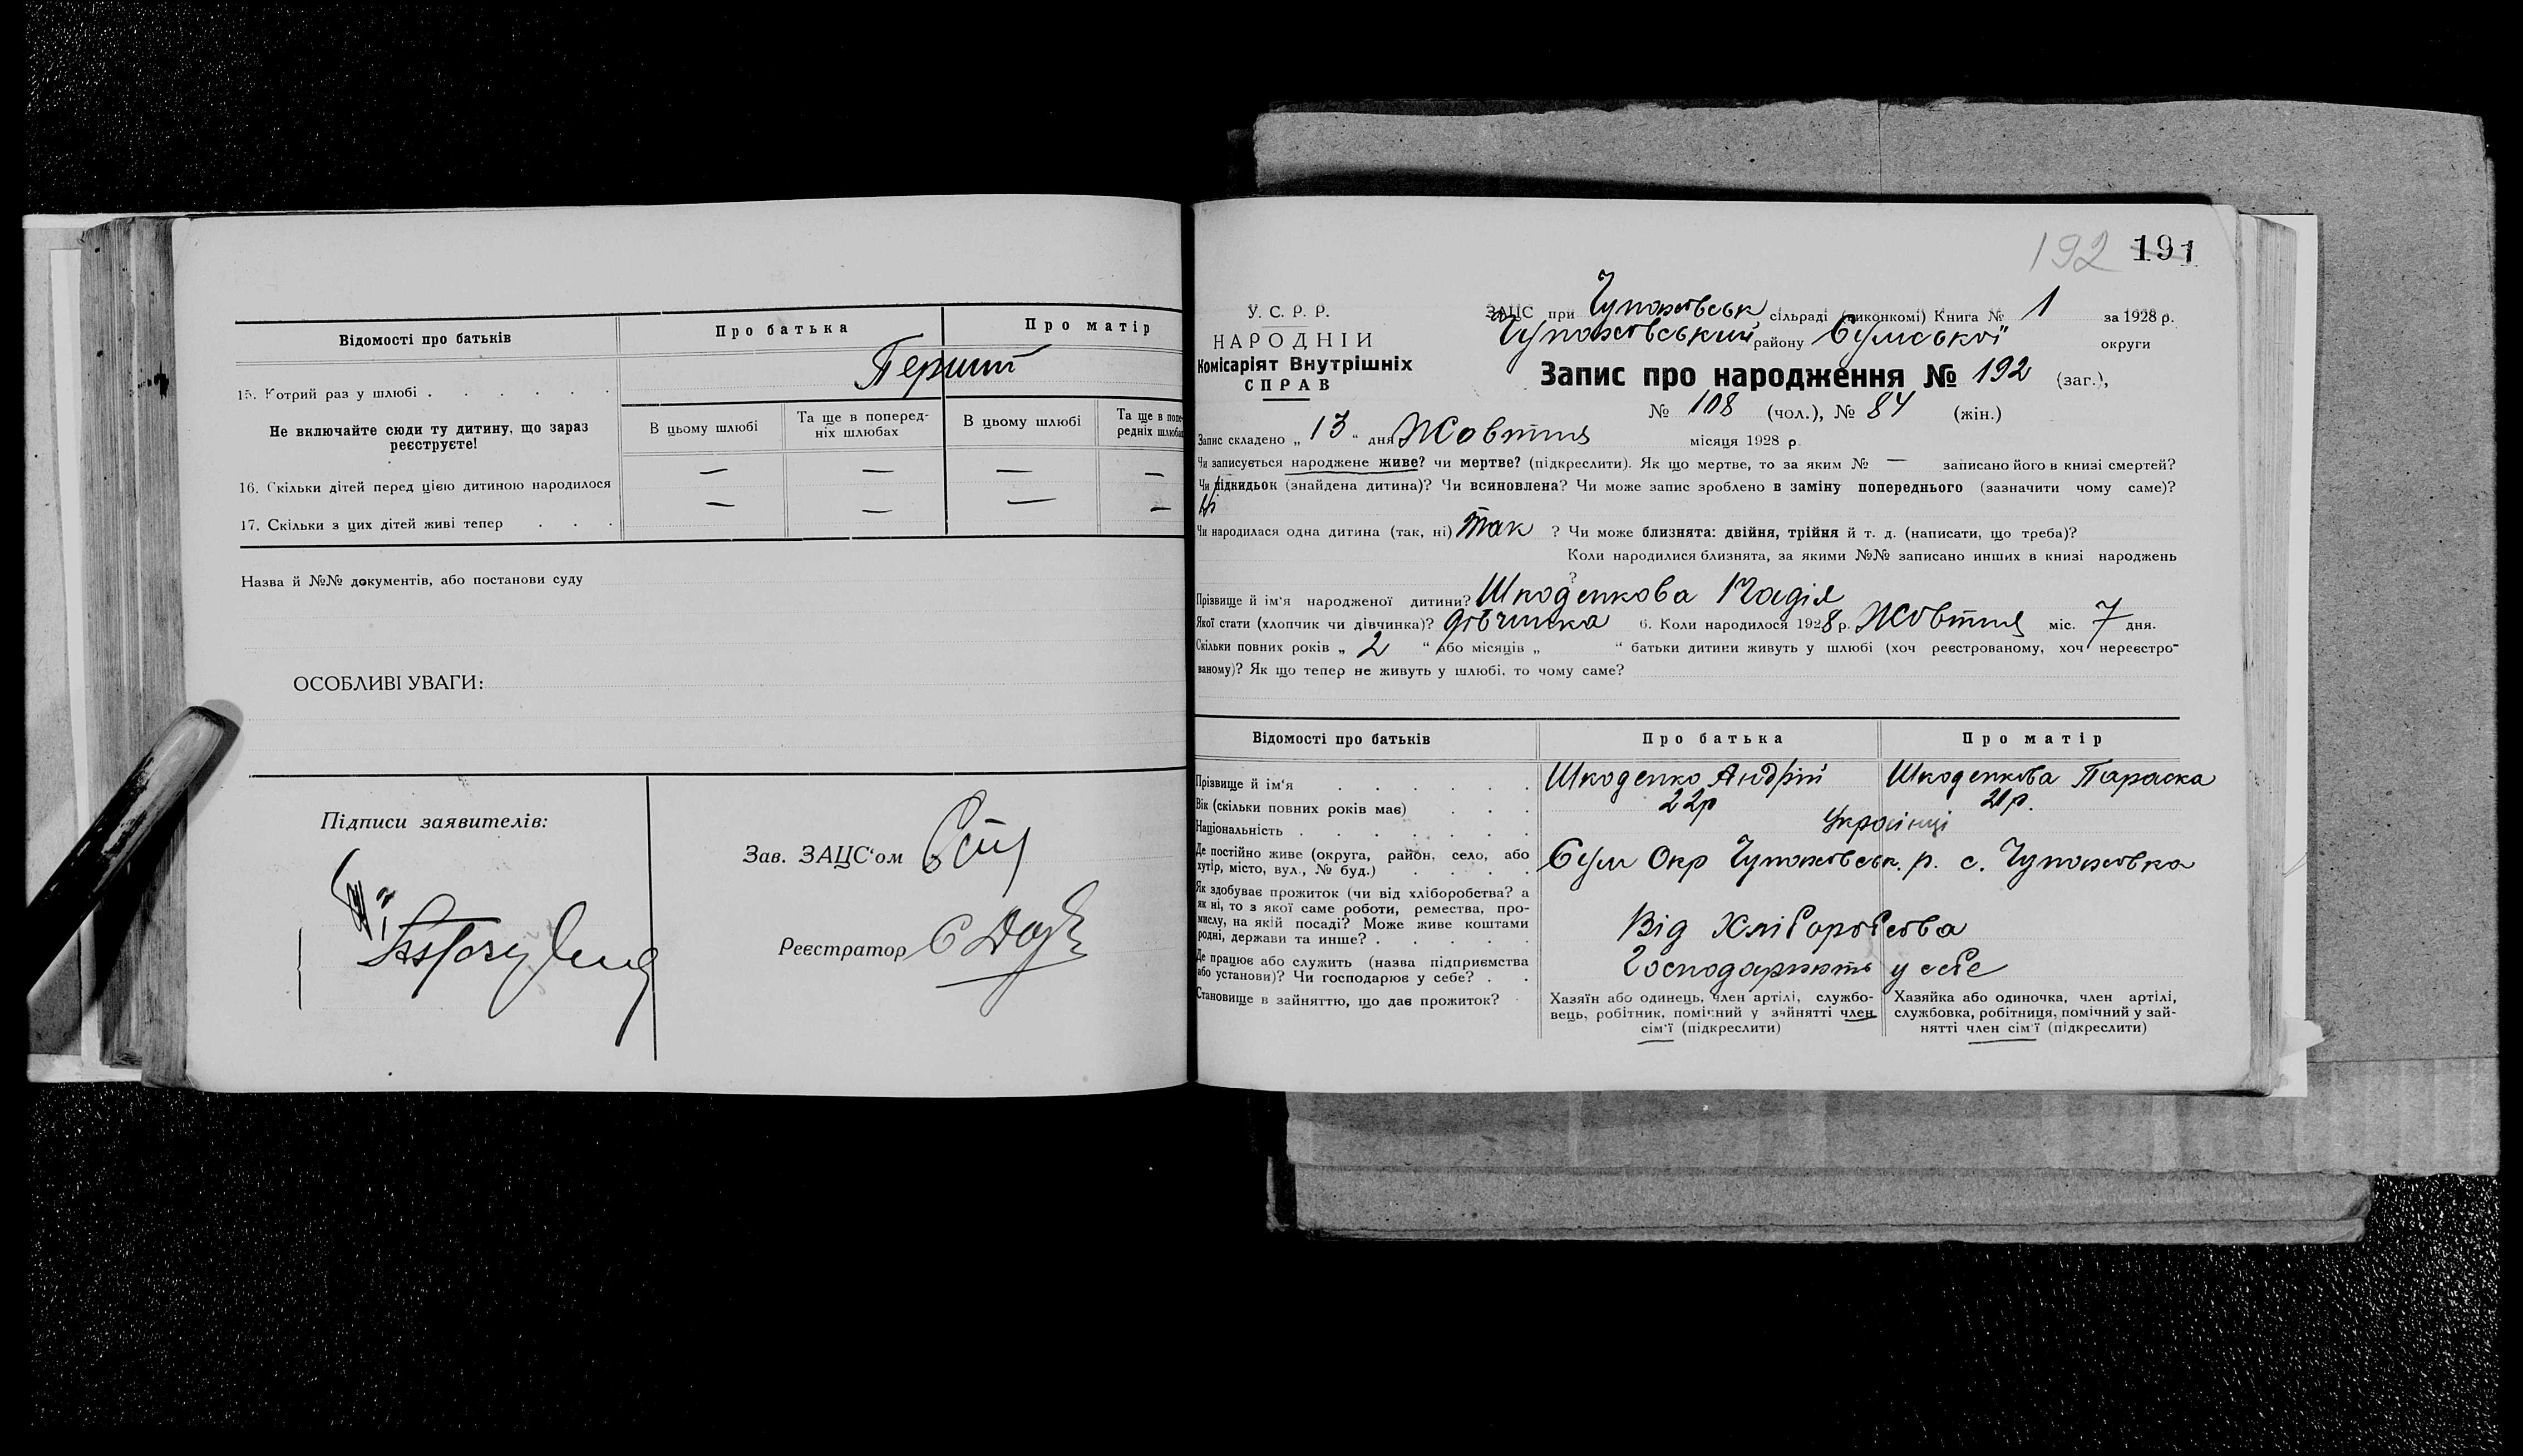 Відомості про батьків
Про батька
Про матір
15. Котрий раз у шлюбі
Перший
Не включайте сюди ту дитину, що зараз
реєструєте!
В цьому шлюбі
Та ще в поперед-
ніх шлюбах
В цьому шлюбі
Та ще в попе-
редніх шлюбах
16. Скільки дітей перед цією дитиною народилося — — — —
17. Скільки з цих дітей живі тепер . . . — — — —
Назва й №№ документів, або постанови суду
ОСОБЛИВІ УВАГИ:
Підписи заявителів:
Зав. ЗАЦС'ом
Реєстратор
192 191
У. С. Р. Р.
НАРОДНІЙ
Комісаріят Внутрішніх
СПРАВ
ЗАЦС при Чупахівськ сільраді (виконкомі) Книга № 1 за 1928 р.
Чупахівський району Сумської округи
Запис про народження № 192 (заг.),
№ 108 (чол.), № 84 (жін.)
Запис складено „ 13 “ дня Жовтня місяця 1928 р.
Чи записується народжене живе? чи мертве? (підкреслити). Як що мертве, то за яким № — записано його в книзі смертей?
Чи підкидьок (знайдена дитина)? Чи всиновлена? Чи може запис зроблено в заміну попереднього (зазначити чому саме)?
Чи народилася одна дитина (так, ні) так ? Чи може близнята: двійня, трійня й т. д. (написати, що треба)?
Коли народилися близнята, за якими №№ записано инших в книзі народжень
?
Прізвище й ім'я народженої дитини? Шкоденкова Надія
Якої стати (хлопчик чи дівчинка)? дівчинка 6. Коли народилося 1928 р. Жовтня міс. 7 дня.
Скільки повних років „ 2 “ або місяців „ “ батьки дитини живуть у шлюбі (хоч реєстрованому, хоч нереєстро-
ваному)? Як що тепер не живуть у шлюбі, то чому саме?
Відомості про батьків
Про батька
Про матір
Прізвище й ім'я . . . . . . Шкоденко Андрій Шкоденкова Параска
Вік (скільки повних років має) . . . 22р 21р.
Національність . . . . . . . Українці
Де постійно живе (округа, район, село, або
хутір, місто, вул., № буд.) . . . .
Сум Окр Чупахівськ. р. с. Чупахівка
Як здобуває прожиток (чи від хліборобства? а
як ні, то з якої саме роботи, ремества, про-
мислу, на якій посаді? Може живе коштами
родні, держави та инше? . . . . .
Від Хліборобства
Де працює або служить (назва підприємства
або установи)? Чи господарює у себе? . .
Господарюють у себе
Становище в зайняттю, що дає прожиток?
Хазяїн або одинець, член артілі, службо-
вець, робітник, помічний у зайнятті член
сім'ї (підкреслити)
Хазяйка або одиночка, член артілі,
службовка, робітниця, помічний у зай-
нятті член сім'ї (підкреслити)